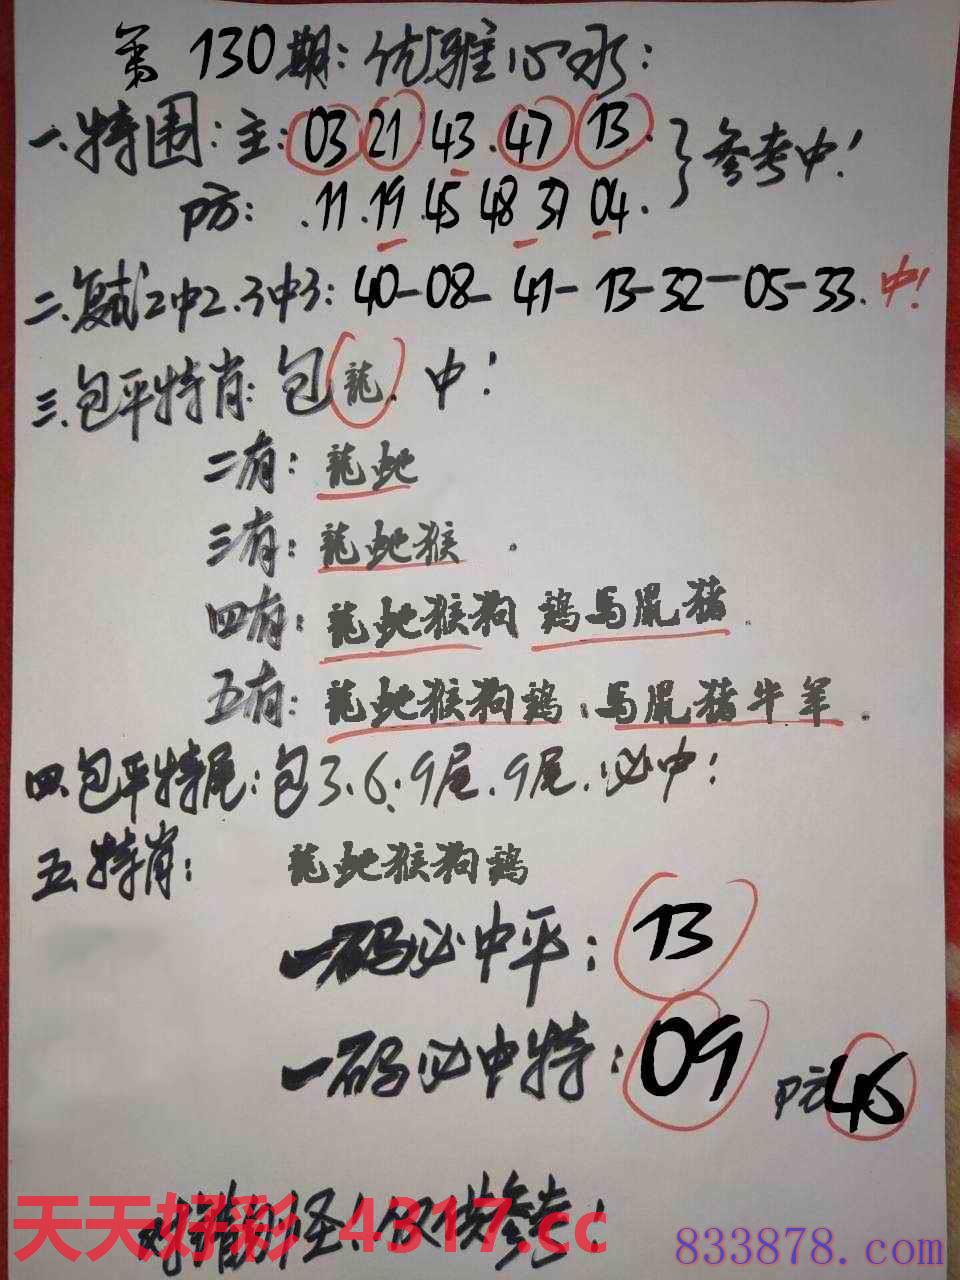 第130期：优雅心水：
一.特围：主：03 21 43.47 13. 参考中！
防：.11.19.45 48 37 04.
二.复式2中2.3中3：40-08-41-13-32-05-33.中！
三.包平特肖：包龍.中！
二有：龍虵
三有：龍虵猴.
四有：龍虵猴狗 鷄马鼠猪.
五有：龍虵猴狗鷄.马鼠猪牛羊.
四.包平特尾：包3.6.9尾.9尾.必中！
五.特肖：龍虵猴狗鷄
一码必中平：13
一码必中特：09 防46
对错别怪！仅供参考！
天天好彩 4317.cc
833878.com